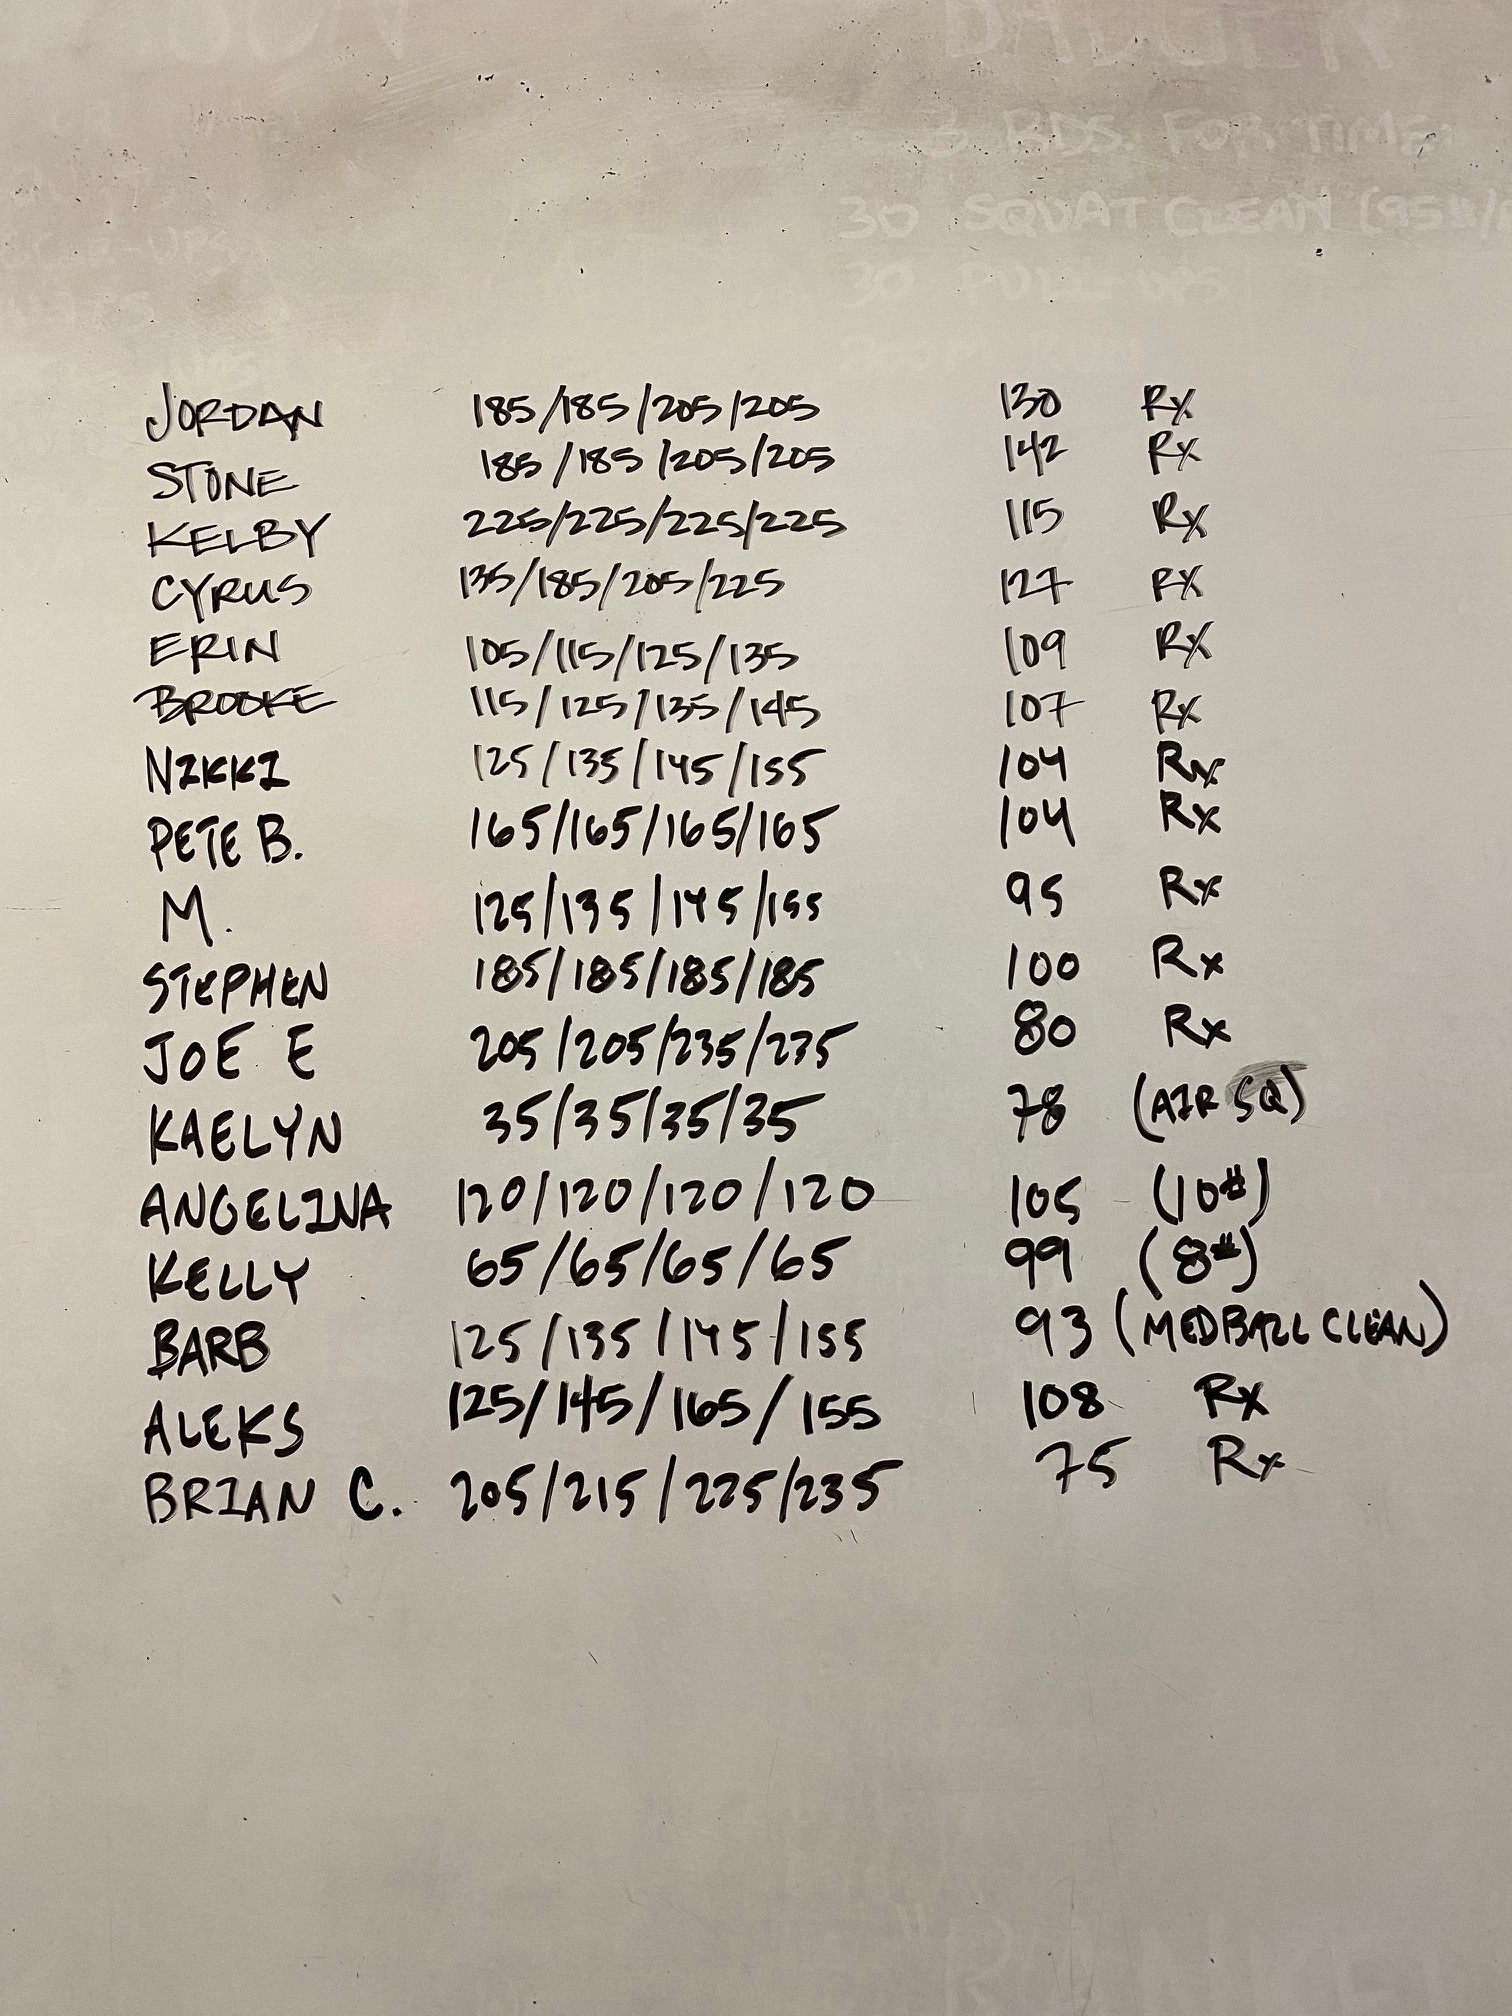 3 RDS. FOR TIME:
30 SQUAT CLEAN (95#/
30 PULL-UPS
JORDAN 185/185/205/205 130 Rx
STONE 185/185/205/205 142 Rx
KELBY 225/225/225/225 115 Rx
CYRUS 135/185/205/225 127 Rx
ERIN 105/115/125/135 109 Rx
BROOKE 115/125/135/145 107 Rx
NIKKI 125/135/145/155 104 Rx
PETE B. 165/165/165/165 104 Rx
M. 125/135/145/155 95 Rx
STEPHEN 185/185/185/185 100 Rx
JOE E 205/205/235/235 80 Rx
KAELYN 35/35/35/35 78 (AIR SQ)
ANGELINA 120/120/120/120 105 (10#)
KELLY 65/65/65/65 99 (8#)
BARB 125/135/145/155 93 (MEDBALL CLEAN)
ALEKS 125/145/165/155 108 Rx
BRIAN C. 205/215/225/235 75 Rx